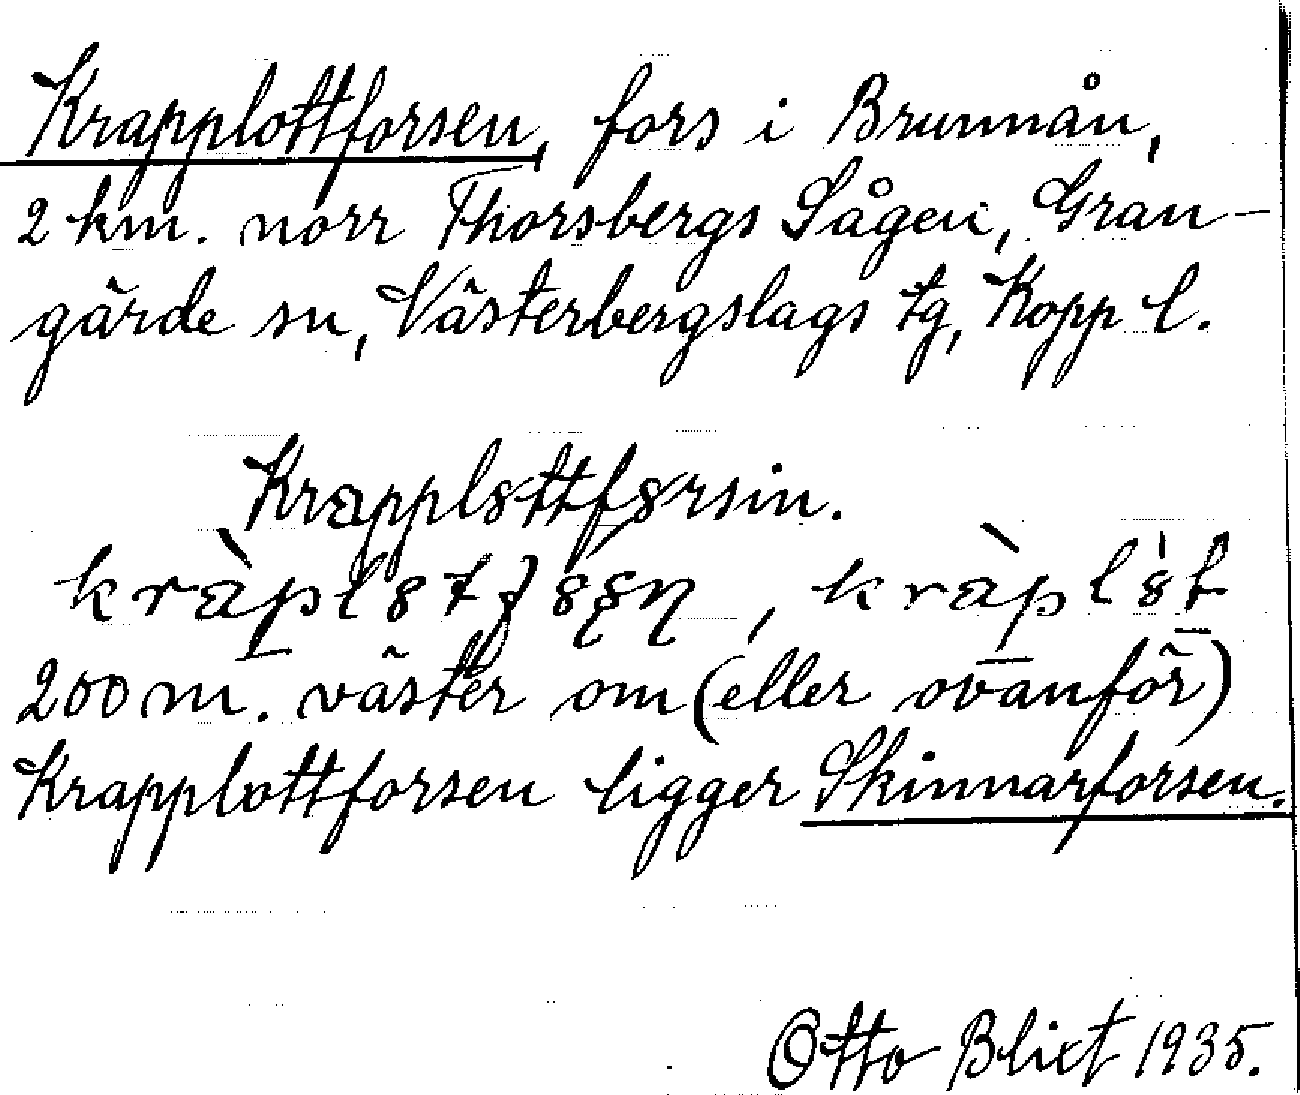 Krapplottforsen, fors i Brunnån,
2 km. norr Thorsbergs Sågen, Gran-
gärde sn, Västerbergslags tg, Kopp l.
Krapplȣttfȣrsin.
200 m. väster om (eller ovanför)
Krapplottforsen ligger Skinnarforsen.
Otto Blixt 1935.